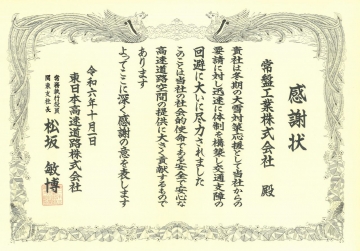 感謝状
常盤工業株式会社 殿
貴社は冬期の大雪対策応援として当社からの
要請に対し迅速に体制を構築し交通支障の
回避に大いに尽力されました
このことは当社の社会的使命である安全で安心な
高速道路空間の提供に大きく貢献するもので
あります
よってここに深く感謝の意を表します
令和六年十月一日
東日本高速道路株式会社
常務執行役員
関東支社長
松坂 敏博